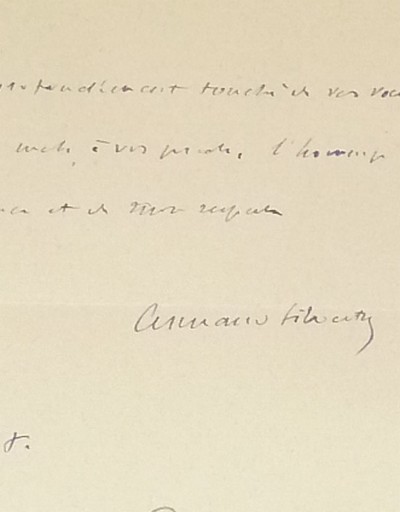 profondément touché de vos vœu
mets à vos pieds, l'hommage
et de mon respect
Armand Silvestre